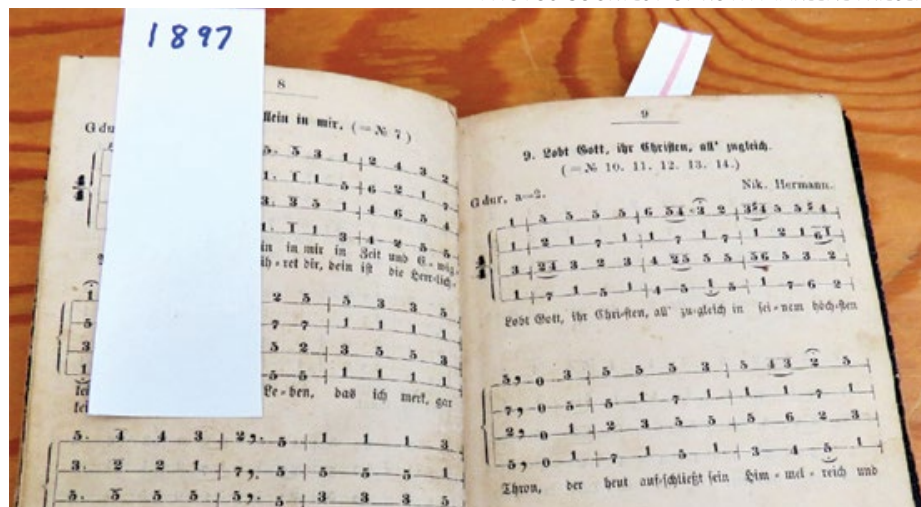 1897
8
G dur.
lein in mir. (= № 7)
5. 5 3 1 | 2 4 3 2
1. 1 1 5 | 6 2 1 7
3. 3 5 1 | 4 6 5 4
1. 1 1 3 | 4 2 5 5
in in mir in Zeit und E- wig-
üh - ret dir, dein ist die Herr-lich-
2 5 | 5 3 3 5
7 7 | 1 1 1 1
5 2 | 3 5 5 3
5 5 | 1 1 1 1
Le - ben, das ich merk, gar
5. 4 4 3 | 2 9. 5 | 1 1 1 3
3. 2 2 1 | 7 9. 5 | 5 5 5 1
5. 5 5 5 | 5 9. 5 | 3 3 3 5
9
9. Lobt Gott, ihr Christen, all' zugleich.
(= № 10. 11. 12. 13. 14.)
G dur. a—2.
Nik. Hermann.
1 | 5 5 5 5 | 6 54 3 2 | 3#4 5 5 #4
1 | 2 1 7 1 | 1 7 1 7 | 1 2 1 61
3 | 24 3 2 3 | 4 25 5 5 | 56 5 3 2
1 | 7 1 5 1 | 4 5 1 5 | 1 7 6 2
Lobt Gott, ihr Chri-sten, all' zu-gleich in sei-nem höch-sten
5 9 0 3 | 5 5 5 3 | 5 43 2 5
7 9 0 5 | 5 1 7 1 | 1 1 7 1
2 9 0 1 | 2 3 5 5 | 5 6 2 3
5 9 0 1 | 7 1 5 1 | 3 4 5 1
Thron, der heut auf-schließt sein Him - mel - reich und